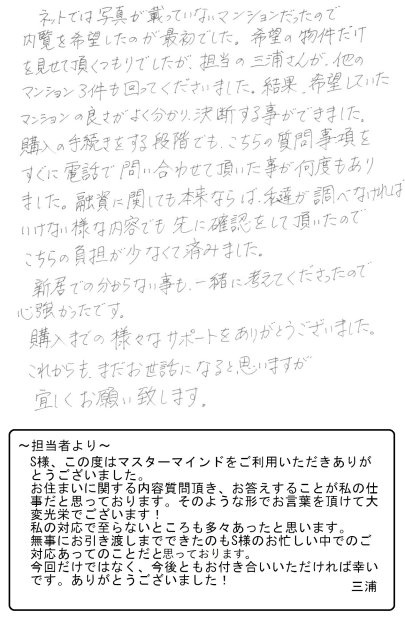 ネットでは写真が載っていないマンションだったので
内覧を希望したのが最初でした。希望の物件だけ
を見せて頂くつもりでしたが、担当の三浦さんが、他の
マンション3件も回ってくださいました。結果、希望していた
マンションの良さがよく分かり、決断する事ができました。
購入の手続きをする段階でも、こちらの質問事項を
すぐに電話で問い合わせて頂いた事が何度もあり
ました。融資に関しても本来ならば、私達が調べなければ
いけない様な内容でも先に確認をして頂いたので
こちらの負担が少なくて済みました。
新居での分からない事も、一緒に考えてくださったので
心強かったです。
購入までの様々なサポートをありがとうございました。
これからも、まだお世話になると思いますが
宜しくお願い致します。
～担当者より～
S様、この度はマスターマインドをご利用いただきありが
とうございました。
お住まいに関する内容質問頂き、お答えすることが私の仕
事だと思っております。そのような形でお言葉を頂けて大
変光栄でございます！
私の対応で至らないところも多々あったと思います。
無事にお引き渡しまでできたのもS様のお忙しい中でのご
対応あってのことだと思っております。
今回だけではなく、今後ともお付き合いいただければ幸い
です。ありがとうございました！
三浦